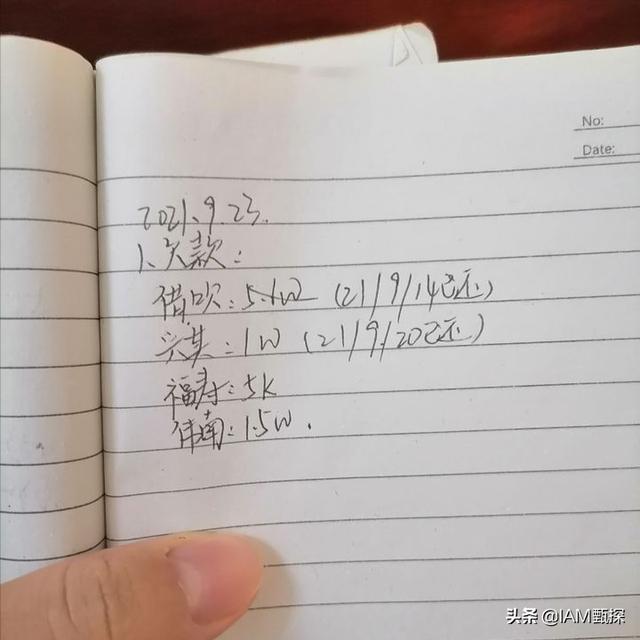 No:
Date:
2021.9.23.
1、欠款:
借呗:5.1W (21/9/14已还)
头某:1W (21/9/20已还)
福寿:5K
伟南:1.5W.
头条 @IAM甄探